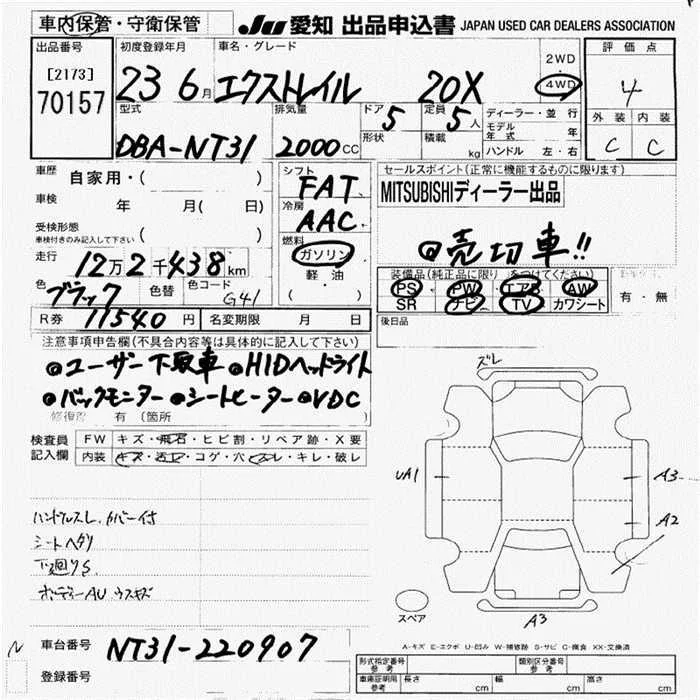 車内保管・守衛保管
JU 愛知 出品申込書 JAPAN USED CAR DEALERS ASSOCIATION
出品番号 初度登録年月 車名・グレード 2WD 評価点
[2173] 23 6月 エクストレイル 20X 4WD 4
70157 型式 排気量 ドア 5 定員 5人 ディーラー・並行 外装 内装
DBA-NT31 2000CC 形状 積載 kg モデル年式 年 C C
ハンドル 左・右
車歴 自家用・( ) シフト FAT セールスポイント(正常に機能するものに限ります)
車検 年 月( 日) 冷房 AAC MITSUBISHIディーラー出品
受検形態 燃料
車検付きのみ記入して下さい ( ) ガソリン ◎売切車!!
走行 12万2千438km 軽油
( ) 装備品(純正品に限り をつけてください)
色 ブラック 色替 色コード G41 PS PW エアB AW 有・無
SR ナビ TV カワシート
R券 11540円 名変期限 月 日 後日品
注意事項申告欄(不具合内容等は具体的に記入して下さい)
◎ユーザー下取車 ◎HIDヘッドライト
◎バックモニター ◎シートヒーター ◎VDC
修復歴 有(箇所
検査員 FW キズ・飛石・ヒビ割・リペア跡・X要
記入欄 内装 キズ・汚レ・コゲ・穴・スレ・キレ・破レ
ズレ
UA1 A3
A2
ハンドルスレ、カバー付
シートヘタリ
下廻りS
ボディーAU ウスキズ
スペア A3
A-キズ E-エクボ U-凹み W-補修跡 S-サビ C-腐食 XX-交換済
車台番号 NT31-220907
登録番号
型式指定番号 参考 類別区分番号 参考
車庫証明用 参考 長さ cm 幅 cm 高さ cm